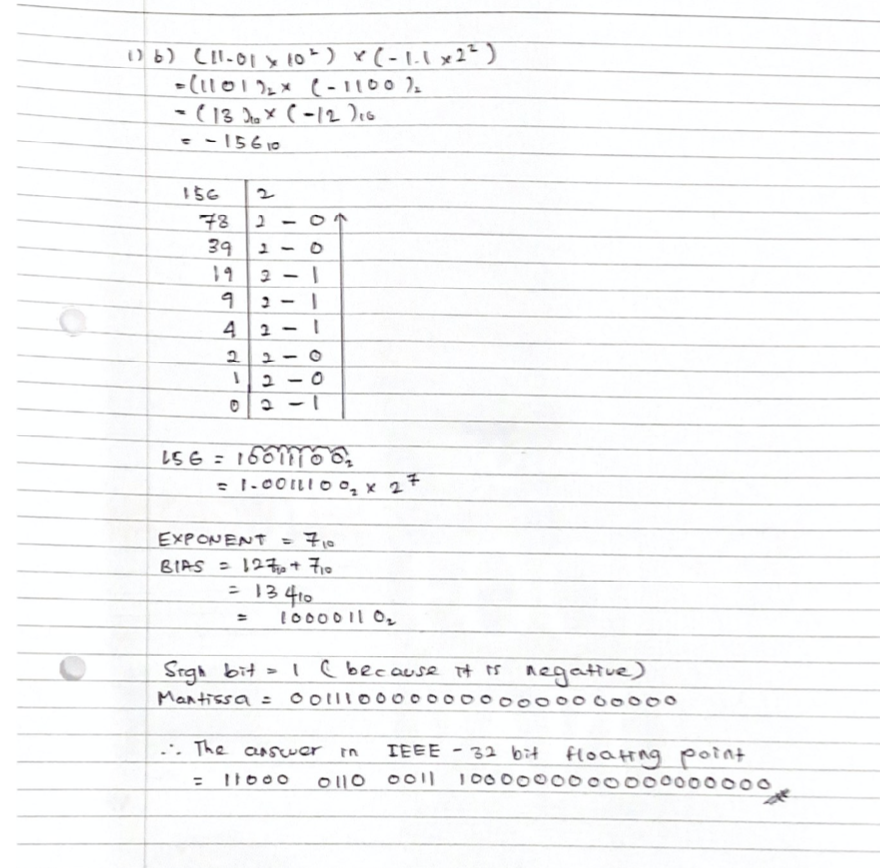 1) b) (11.01 x 10²) x (-1.1 x 2²)
= (1101)₂ x (-1100)₂
= (13)₁₀ x (-12)₁₀
= -156₁₀
156 | 2
78 | 2 - 0
39 | 2 - 0
19 | 2 - 1
9 | 2 - 1
4 | 2 - 1
2 | 2 - 0
1 | 2 - 0
0 | 2 - 1
156 = 10011100₂
= 1.0011100₂ x 2⁷
EXPONENT = 7₁₀
BIAS = 127₁₀ + 7₁₀
= 134₁₀
= 10000110₂
Sign bit = 1 (because it is negative)
Mantissa = 00111000000000000000000
∴ The answer in IEEE - 32 bit floating point
= 11000 0110 0011 1000000000000000000